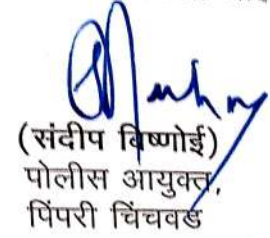 (संदीप बिष्णोई)
पोलीस आयुक्त,
पिंपरी चिंचवड